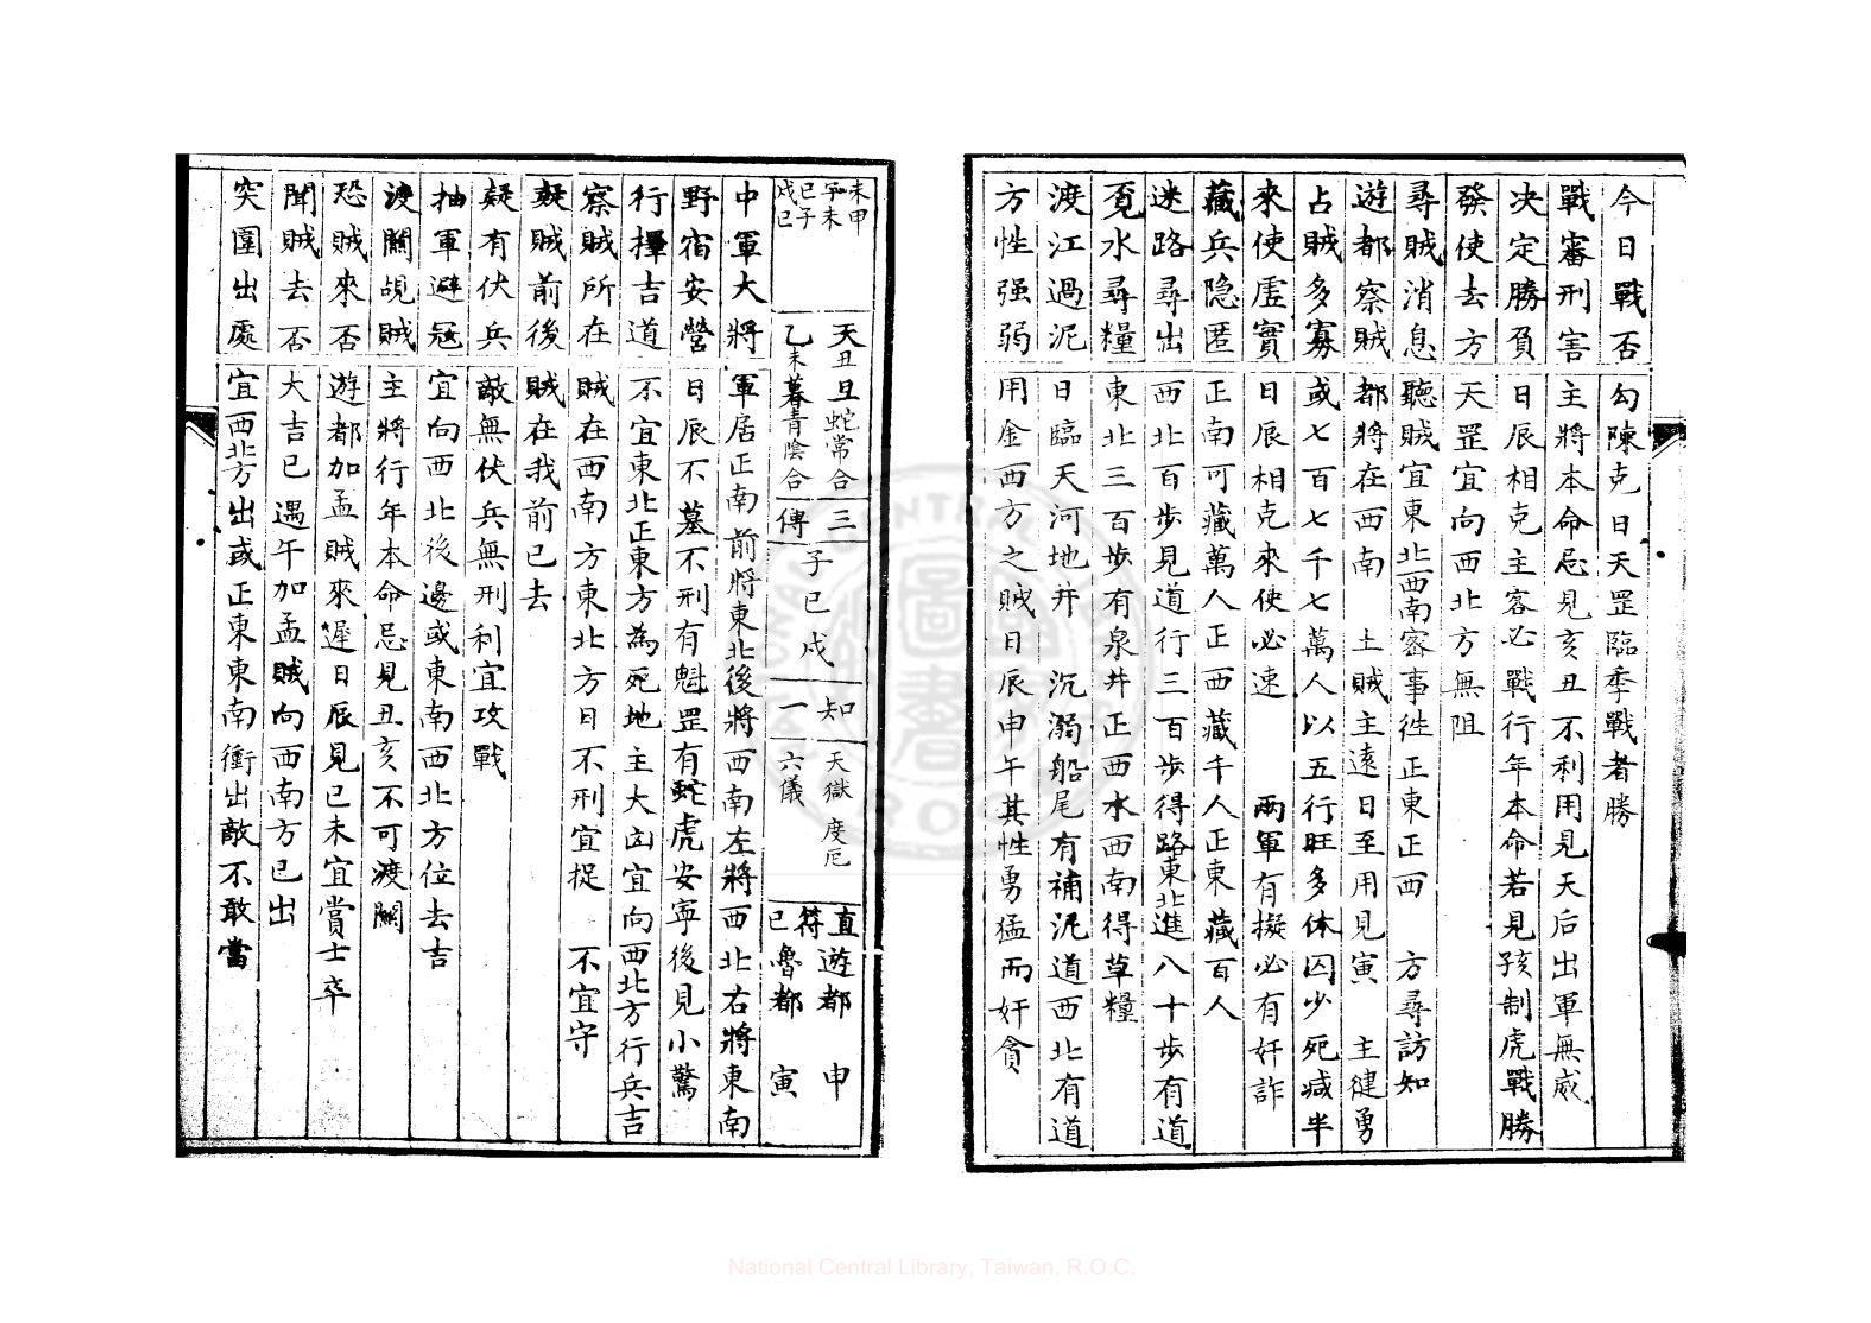 今日戰否 勾陳克日天罡臨季戰者勝
戰審刑害 主將本命忌見亥丑不利用見天后出軍無威
决定勝負 日辰相克主客必戰行年本命若見孩制虎戰勝
發使去方 天罡宜向西北方無阻
尋賊消息 聽賊宜東北西南密事徃正東正西 方尋訪知
遊都察賊 都將在西南 土賊主遠日至用見寅 主健勇
占賊多寡 或七百七千七萬人以五行旺多休囚少死减半
來使虛實 日辰相克來使必速 兩軍有擬必有奸詐
藏兵隐匿 正南可藏萬人正西藏千人正東藏百人
迷路尋出 西北百步見道行三百步得路東北進八十步有道
覓水尋糧 東北三百步有泉井正西水西南得草糧
渡江過泥 日臨天河地井 沉溺船尾有補泥道西北有道
方性强弱 用金西方之賊日辰申午其性勇猛而奸貪
未申
子未
巳子
戌巳
天丑旦蛇常合
乙未暮青陰合
三傳 子巳戌
知一
天獄 度厄
六儀
直符巳
遊都 申
魯都 寅
中軍大將 軍居正南前將東北後將西南左將西北右將東南
野宿安營 日辰不墓不刑有魁罡有蛇虎安寧後見小驚
行擇吉道 不宜東北正東方為死地主大凶宜向西北方行兵吉
察賊所在 賊在西南方東北方日不刑宜捉 不宜守
疑賊前後 賊在我前已去
疑有伏兵 敵無伏兵無刑利宜攻戰
抽軍避寇 宜向西北後邊或東南西北方位去吉
渡關覘賊 主將行年本命忌見丑亥不可渡關
恐賊來否 遊都加孟賊來遲日辰見巳未宜賞士卒
聞賊去否 大吉巳遇午加孟賊向西南方已出
突圍出處 宜西北方出或正東東南衝出敵不敢當
National Central Library, Taiwan, R.O.C.